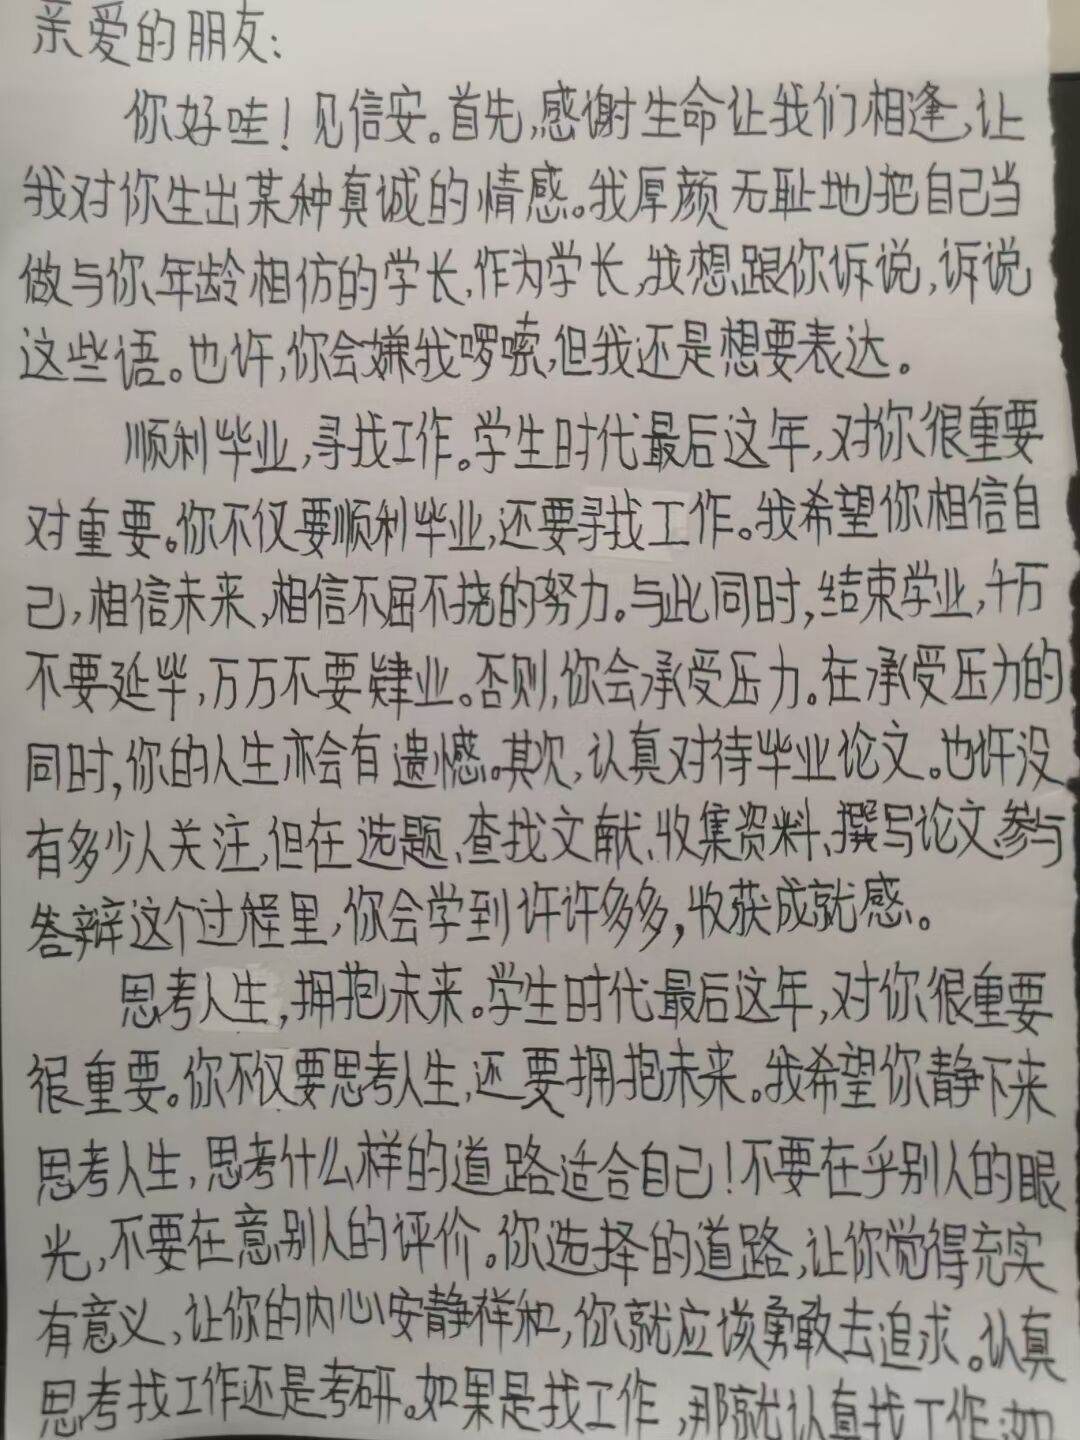 亲爱的朋友：
你好哇！见信安。首先，感谢生命让我们相逢，让
我对你生出某种真诚的情感。我厚颜无耻地把自己当
做与你年龄相仿的学长，作为学长，我想跟你诉说，诉说
这些语。也许，你会嫌我啰嗦，但我还是想要表达。
顺利毕业，寻找工作。学生时代最后这年，对你很重要
对重要。你不仅要顺利毕业，还要寻找工作。我希望你相信自
己，相信未来，相信不屈不挠的努力。与此同时，结束学业，千万
不要延毕，万万不要肄业。否则，你会承受压力。在承受压力的
同时，你的人生亦会有遗憾。其次，认真对待毕业论文。也许没
有多少人关注，但在选题、查找文献、收集资料、撰写论文、参与
答辩这个过程里，你会学到许许多多，收获成就感。
思考人生，拥抱未来。学生时代最后这年，对你很重要
很重要。你不仅要思考人生，还要拥抱未来。我希望你静下来
思考人生，思考什么样的道路适合自己！不要在乎别人的眼
光，不要在意别人的评价。你选择的道路，让你觉得充实
有意义，让你的内心安静祥和，你就应该勇敢去追求。认真
思考找工作还是考研。如果是找工作，那就认真找工作；如